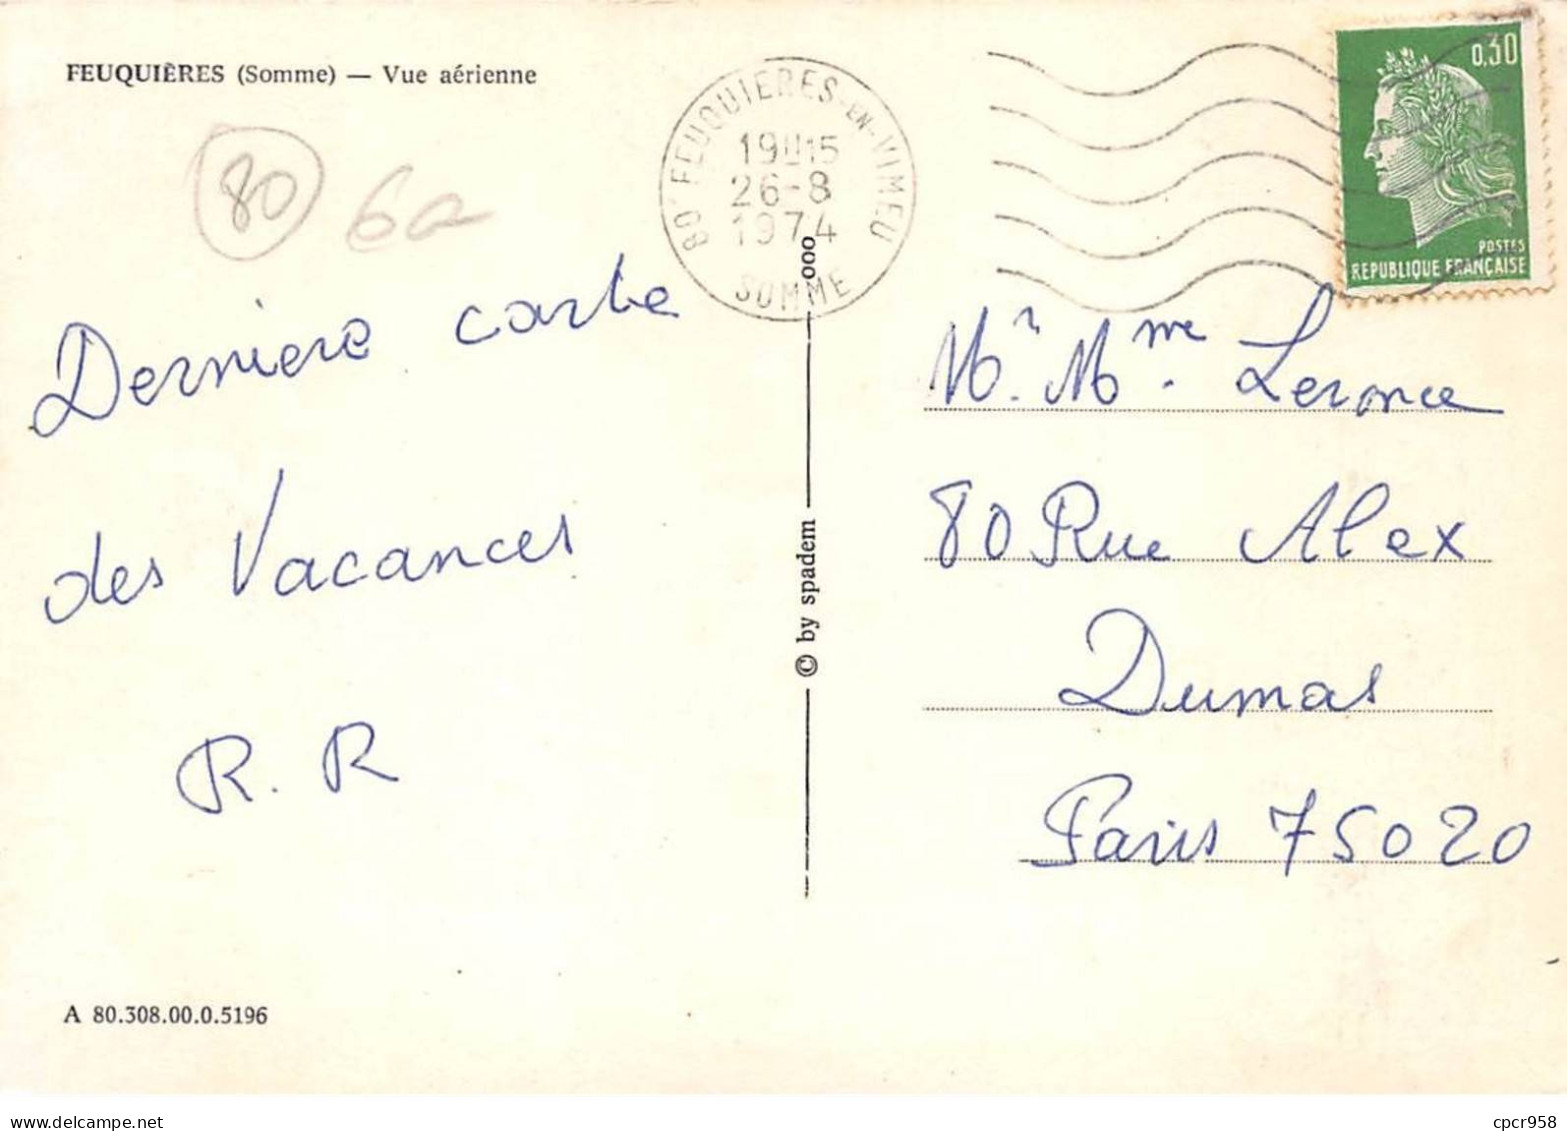 FEUQUIÈRES (Somme) — Vue aérienne
80 6a
Derniere carte
des Vacances
R. R
A 80.308.00.0.5196
80 FEUQUIERES-EN-VIMEU
19H15
26-8
1974
SOMME
ooo
© by spadem
0,30
POSTES
REPUBLIQUE FRANÇAISE
Mr. Mme. Leronce
80 Rue Alex
Dumas
Paris 75020
www.delcampe.net
cpcr958